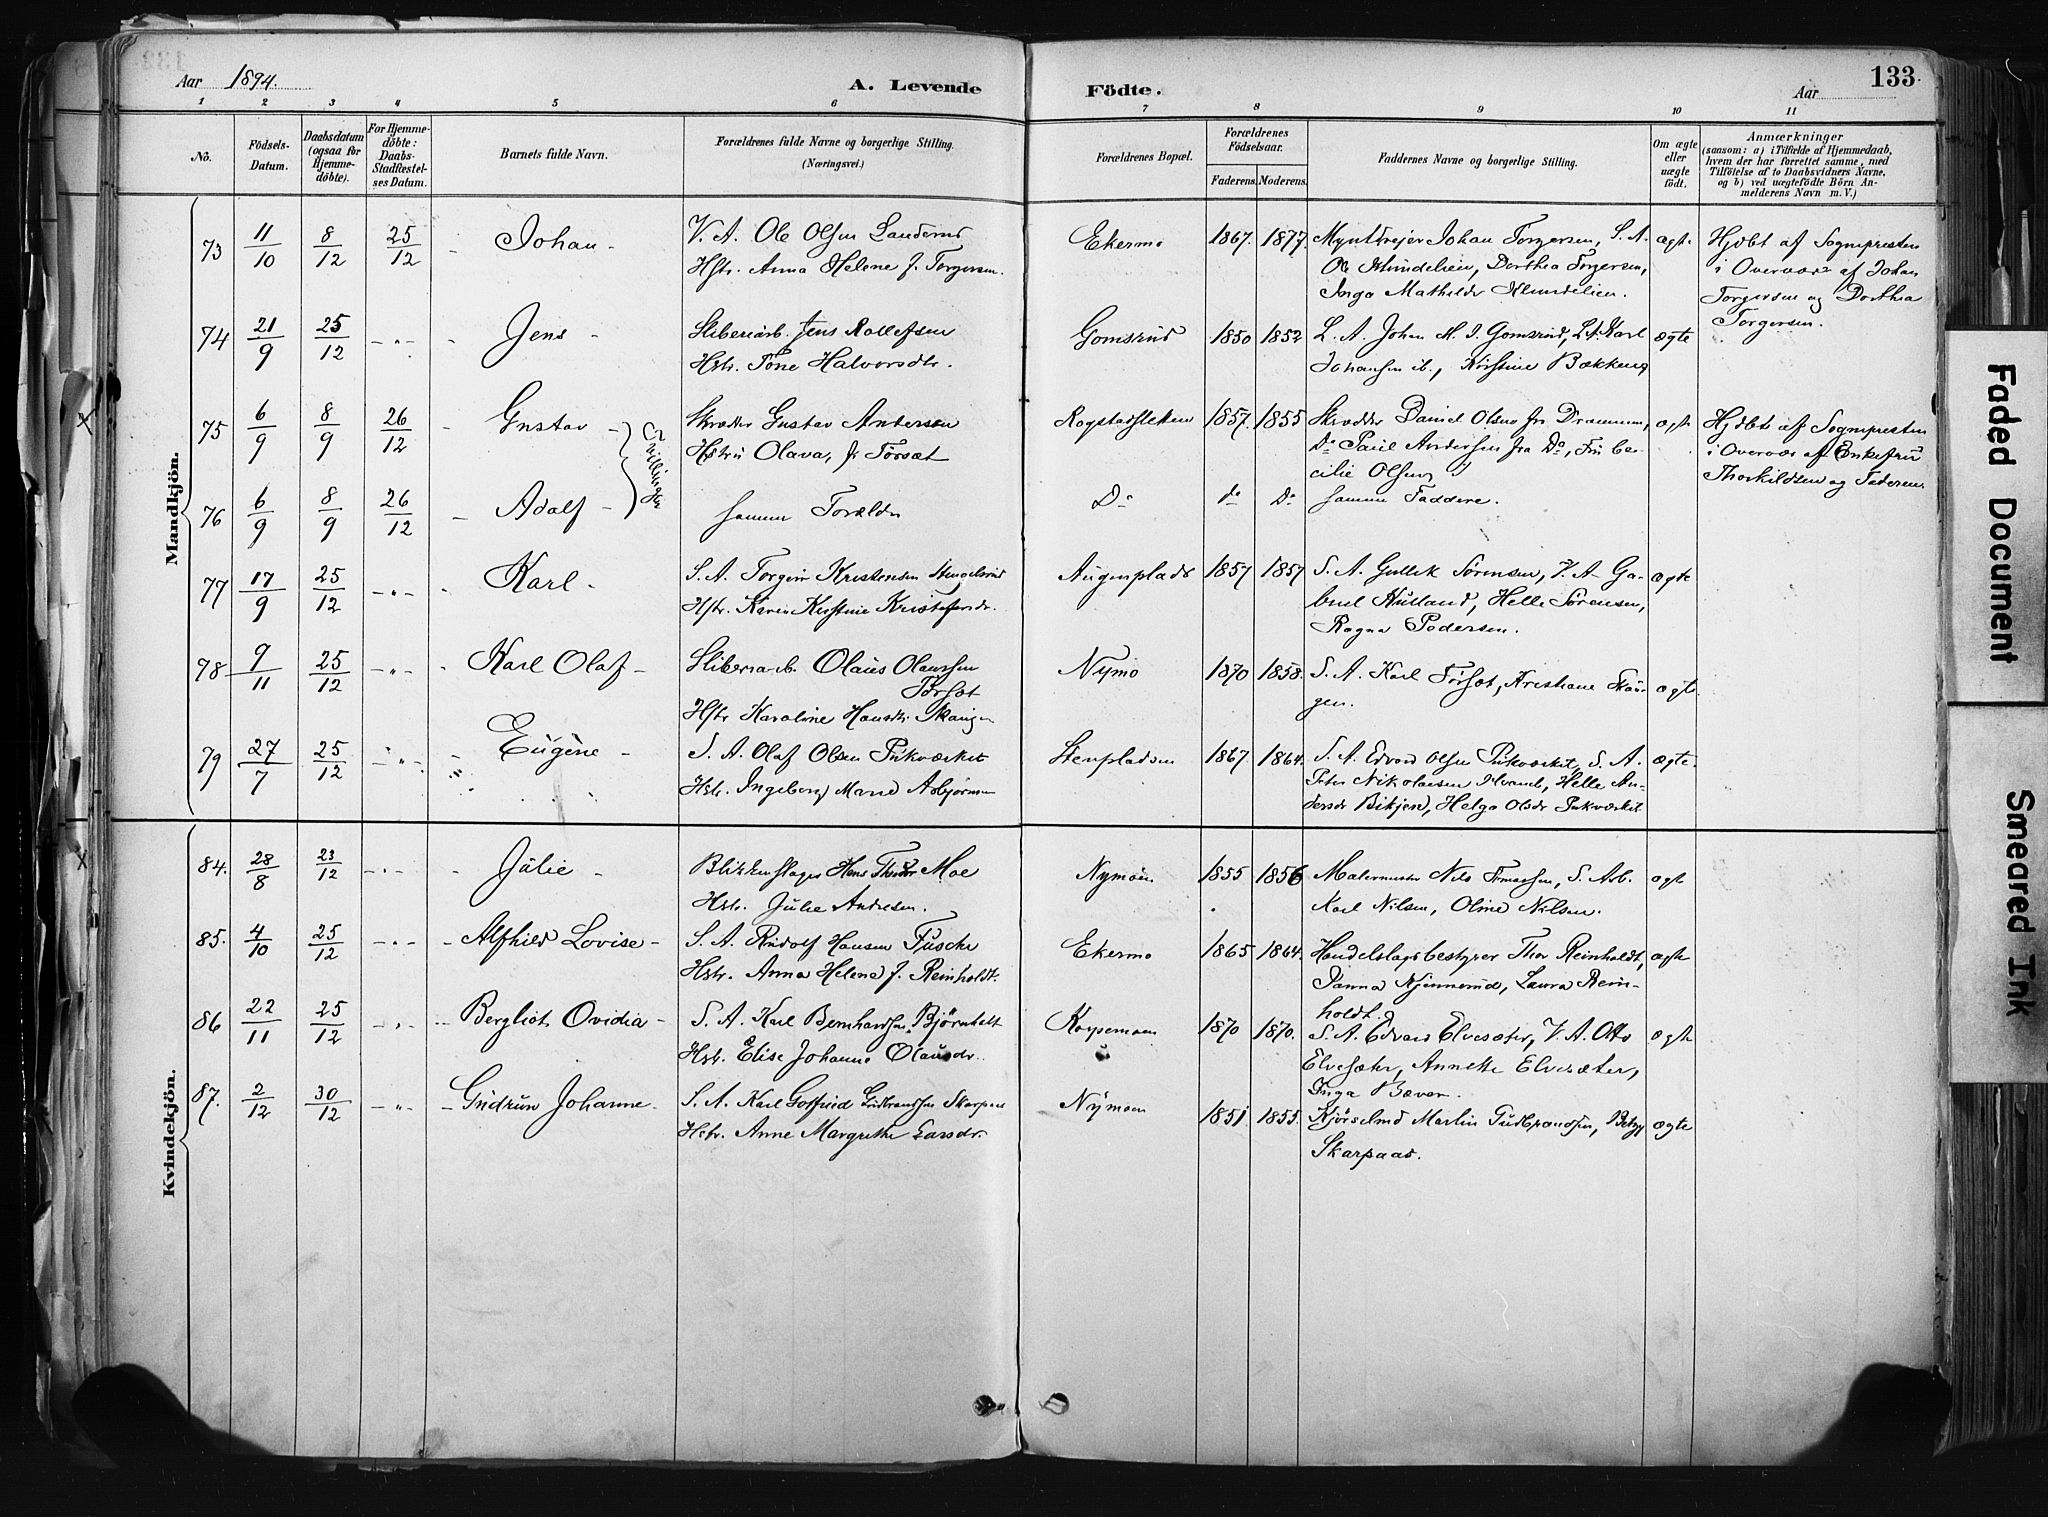 Aar 1894.
A. Levende Födte.
Aar
133.
1 2 3 4 5 6 7 8 9 10 11
No.
Födsels-Datum.
Daabsdatum (ogsaa for Hjemmedöbte).
For Hjemmedöbte: Daabs-Stadfæstelses Datum.
Barnets fulde Navn.
Forældrenes fulde Navne og borgerlige Stilling. (Næringsvei.)
Forældrenes Bopæl.
Forældrenes Födselsaar.
Faderens. Moderens.
Faddernes Navne og borgerlige Stilling.
Om ægte eller uægte födt.
Anmærkninger
(saasom: a) i Tilfælde af Hjemmedaab, hvem der har forrettet samme, med Tilföielse af to Daabsvidners Navne, og b) ved uægtefödte Börn Anmelderens Navn m. V.)
Mandkjön.
73 11/10 8/12 25/12 Johan V. A. Ole Olsen Ekermo 1867. 1877. Myntdreier Johan Torgersen, S. A. ægte Hjdbt af Sognepresten
Hstr. Anna Helene f. Torgersen. Dorthea Torgersen, i Overvær af Johan
Inga Mathilde Torgersen og Dorthea
Torgersen.
74 21/9 25/12 -"- Jens Sliberiarb. Jens Rollefsen Gomsrud 1850 1852 L. A. Johan H. J. Gomsrud, L. A. Karl ægte
Hstr. Tone Halvorsdtr. Johansen ib., Kristine Bækken
75 6/9 8/9 26/12 Gustav Tvillinger Skrædder Gustav Andersen 1857. 1855 Skrædder Daniel Olsen fra Drammen, ægte Hjdbt af Sognepresten
Hstru Olava, f. Torsæt Do Paul Andersen fra Do, i Overvær af Enkefru
cilie Olsen Thorkildsen og Faderen.
76 6/9 8/9 26/12 Adolf samme Forældre Do do Do samme Faddere.
77 17/9 25/12 -"- Karl S. A. Torgeir Kristensen Stengelsrud Augenplads 1857 1857 S. A. Gullik Sørensen, V. A. Ga- ægte
Hstr. Karen Kirstine Kristofersdr. Helle Sørensen,
Ragna Pedersen.
78 9/11 25/12 -"- Karl Olaf Sliberia-b. Olaus Olaussen Nymo 1870 1858. S. A. Karl Torsæt, Kristiane Skau- ægte
Torsæt gen.
Hstr Karoline Hansdtr. Skaugen
79 27/7 25/12 -"- Eugéne S. A. Olaf Olsen Pukværket Stenpladsen 1867. 1864. S. A. Edvard Olsen Pukværket, S. A. ægte.
Hstr. Ingeborg Marie Asbjørnsen Peter Nikolaisen Hvamb, Helle An-
dersdr Bikjen, Helga Olsdr Pukværket
Kvindekjön.
84. 28/8 23/12 -"- Julie Blikkenslager Hans Moe Nymoen 1855 1856 Malermester Nils S. Arb. ægte
Hstr. Julie Andresen. Karl Nilsen, Oline Nilsen.
85. 4/10 25/12 -"- Alfhild Lovise S. A. Rudolf Hansen Fusche Ekermo 1865 1864. Handelslagsbestyrer Thor Reinholdt, ægte
Hstr. Anna Helene f. Reinholdt. Laura Rein-
holdt.
86 22/11 25/12 -"- Bergliot Ovidia S. A. Karl Bernhardsen Bjørnholt Korpemoen 1870 1870. S. A. Edvard Elvesæter, V. A. Otto ægte
Hstr. Elise Johanne Olausdr. Elvesæter, Annette Elvesæter,
Inga Bæver.
87. 2/12 30/12 -"- Gudrun Johanne S. A. Karl Gotfried Gudbrandsen Skarpaas Nymoen 1851 1855. Martin Gudbrandsen, ægte
Hstr. Anne Margrethe Larsdr. Skarpaas.
Faded Document
Smeared Ink